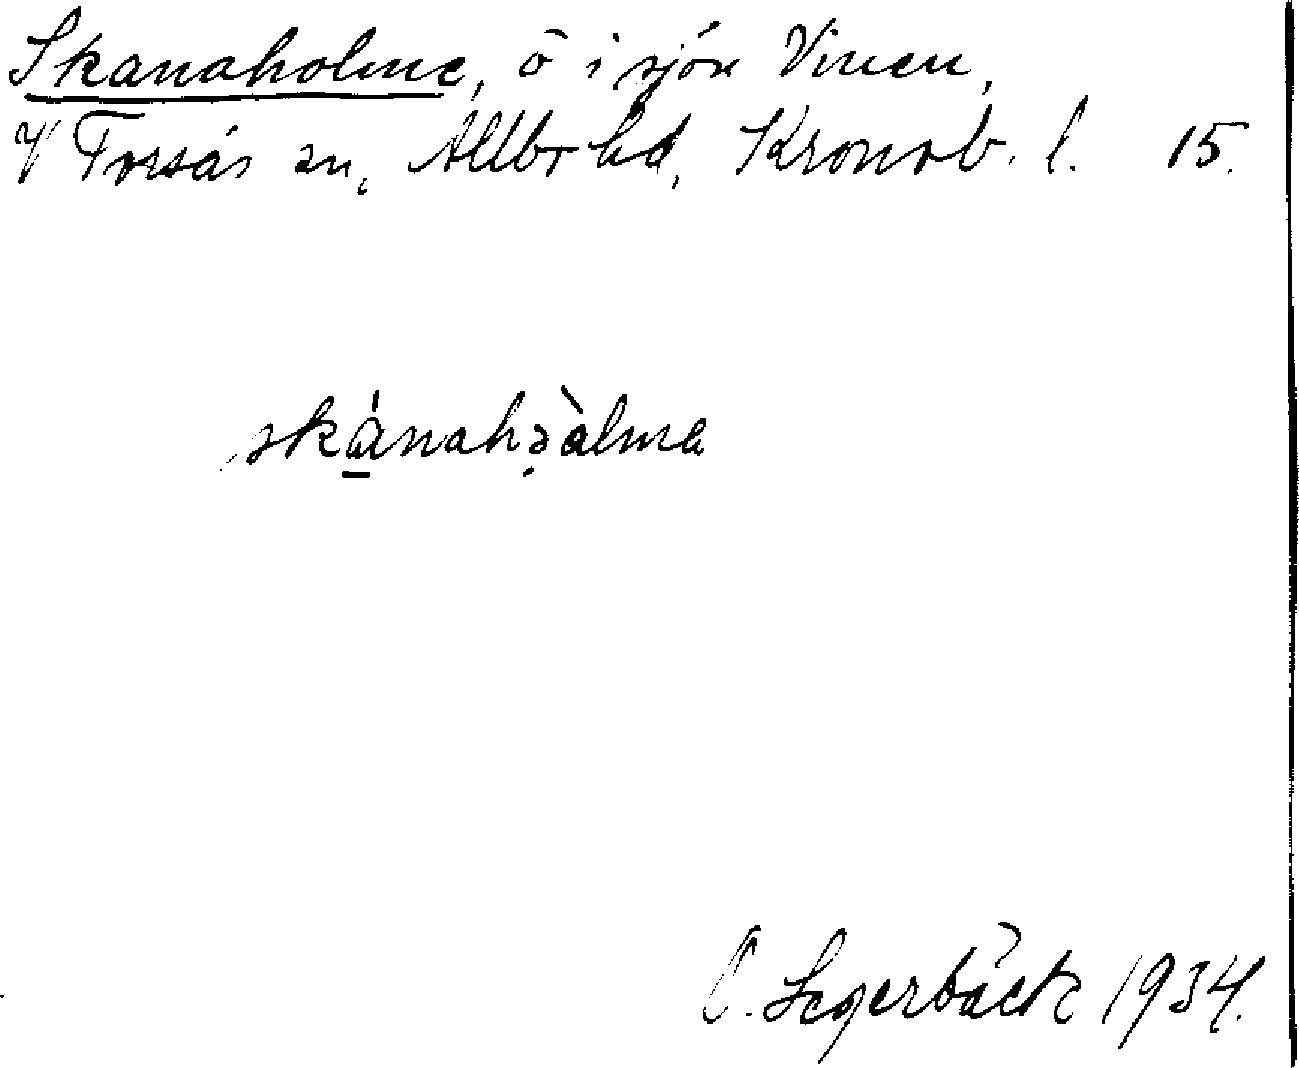 Skanaholme, ö i sjön Vinen,
V Torsås sn, Allbo hd, Kronob. l. 15.
skánahɔàlma
O. Segerbäck 1934.